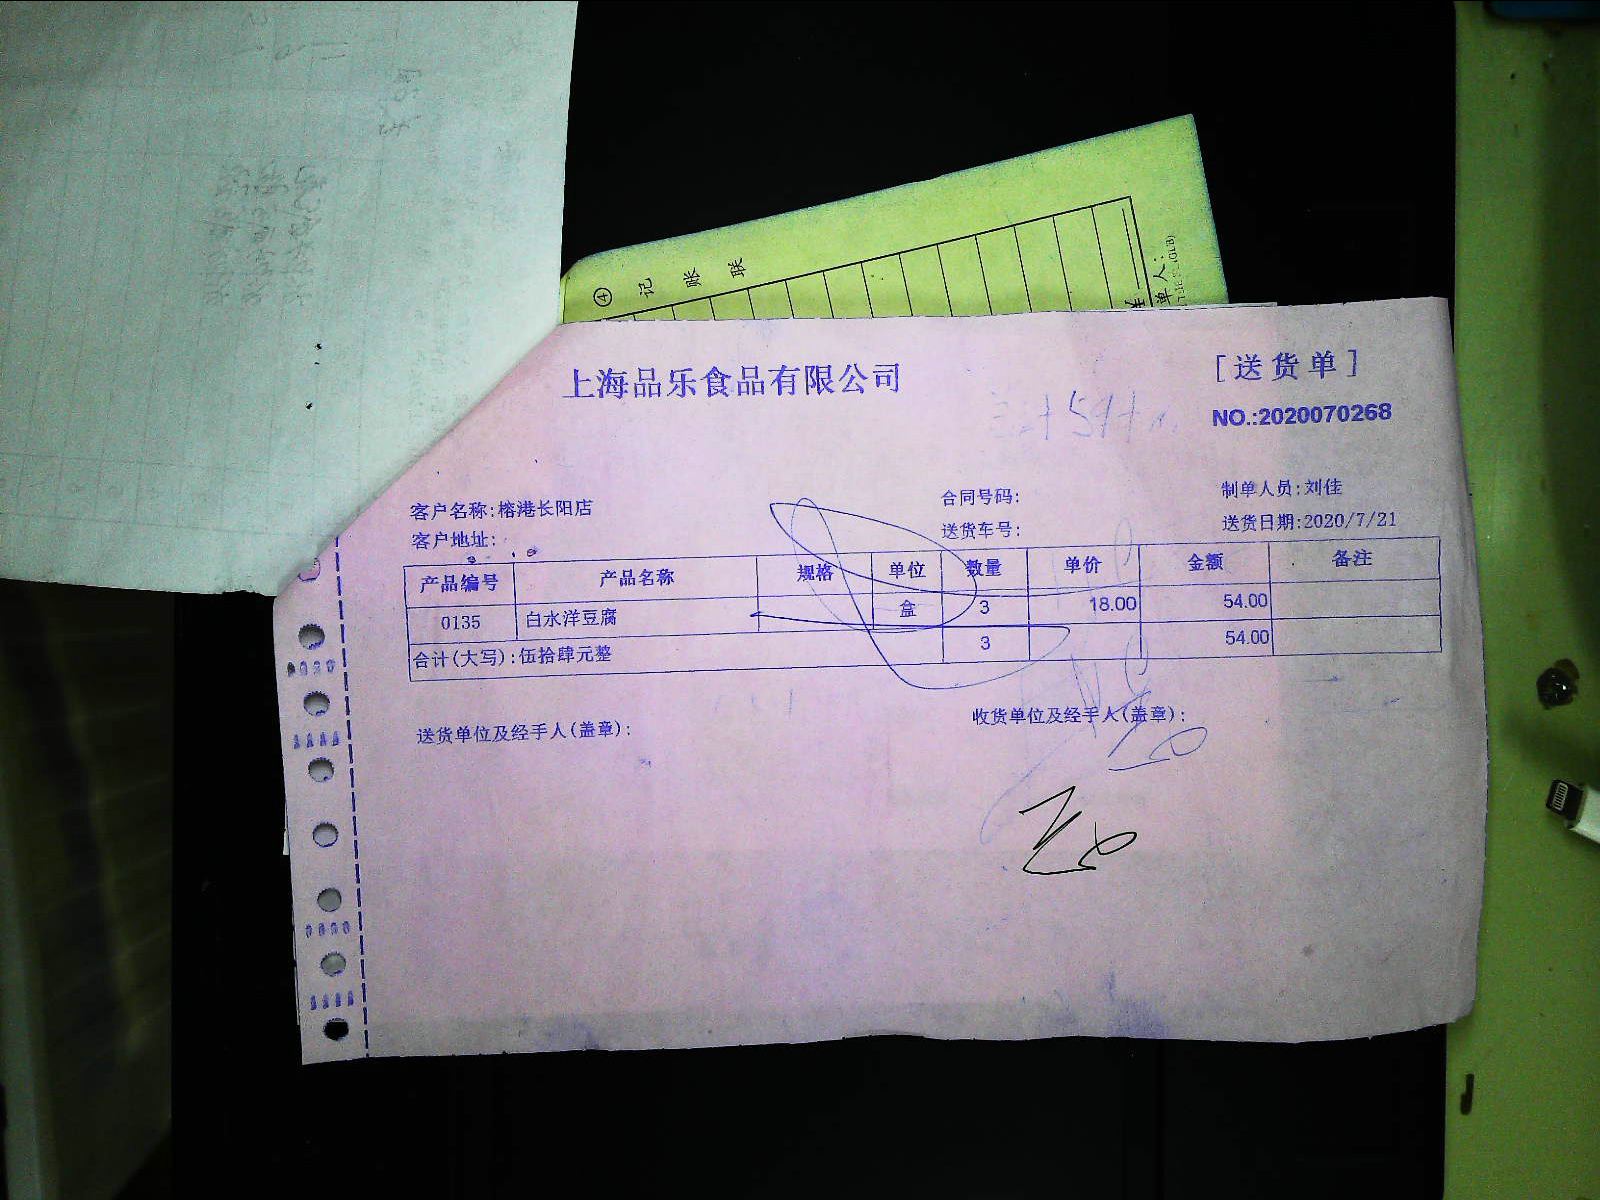 ④ 记 账 联
单人:
上海品乐食品有限公司
[送货单]
NO.:2020070268
客户名称:榕港长阳店
合同号码:
制单人员:刘佳
客户地址:
送货车号:
送货日期:2020/7/21
产品编号 产品名称 规格 单位 数量 单价 金额 备注
0135 白水洋豆腐 盒 3 18.00 54.00
合计(大写):伍拾肆元整 3 54.00
送货单位及经手人(盖章):
收货单位及经手人(盖章):